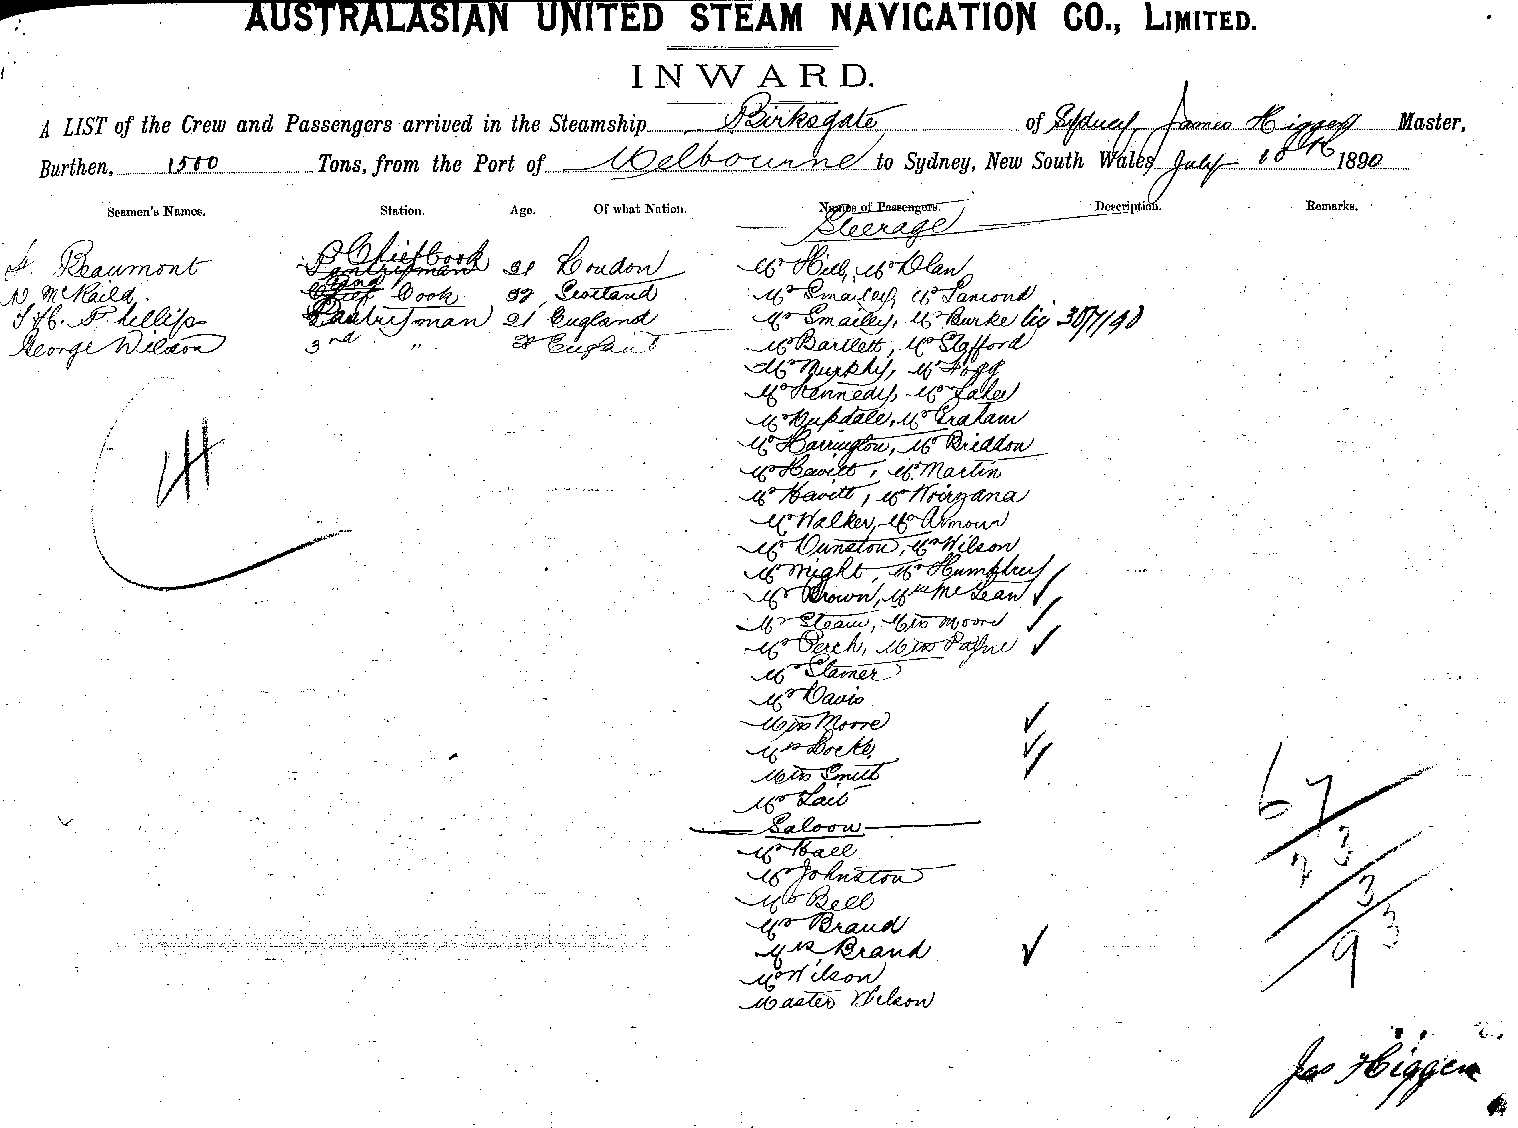 AUSTRALASIAN UNITED STEAM NAVIGATION CO., LIMITED.
INWARD.
A LIST of the Crew and Passengers arrived in the Steamship Birksgate of Sydney, James Higgen Master,
Burthen, 1500 Tons, from the Port of Melbourne to Sydney, New South Wales, July 10th 1890
Seamen's Names. Station. Age. Of what Nation. Names of Passengers. Description. Remarks.
Steerage
Beaumont Chief Cook London Mr Hill, Mr Olan
Cook Scotland Mr Smailey, Mr Lamond
Phillips Pantryman 21 England Mr Smailey, Mr Burke 30/7/90
George Wilson 3rd " England Mr Bartlett, Mr Stafford
Mr Murphy, Mr Fogg
Mr Kennedy, Mr
Mr Graham
Mr Harrington, Mr Briddon
Mr Hewitt, Mr Martin
Mr Hewitt, Mr
Mr Walker, Mr Armour
Mr Dunston, Mr Wilson
Mr Wright, Mr Humfrey
Mr Brown, Mrs McLean
Mr Steam, Miss Moore
Mr Perch, Miss Payne
Mr Stamer
Mr Davis
Miss Moore
Mrs Locke
Miss Smith
Mr Tait
Saloon
Mr Hall
Mr Johnston
Mr Bell
Mr Brand
Mrs Brand
Mr Wilson
Master Wilson
67
23
3
93
Jas Higgen